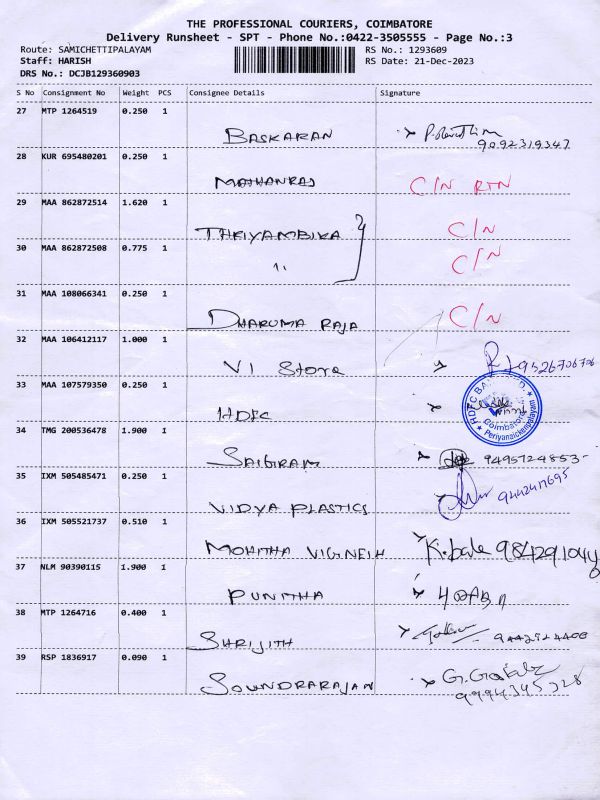 THE PROFESSIONAL COURIERS, COIMBATORE
Delivery Runsheet - SPT - Phone No.:0422-3505555 - Page No.:3
Route: SAMICHETTIPALAYAM RS No.: 1293609
Staff: HARISH RS Date: 21-Dec-2023
DRS No.: DCJB129360903
S No Consignment No Weight PCS Consignee Details Signature
27 MTP 1264519 0.250 1
BASKARAN 9092319347
28 KUR 695480201 0.250 1
MATHANRAJ C/N RTN
29 MAA 862872514 1.620 1
THRIYAMBIKA C/N
30 MAA 862872508 0.775 1
C/N
31 MAA 108066341 0.250 1
DHARUMA RAJA C/N
32 MAA 106412117 1.000 1
VI Store
33 MAA 107579350 0.250 1
HDFC HDFC BA Coimbatore Periyanaickenpalayam
34 TMG 200536478 1.900 1
SAIGIRAM 9495724853-
35 IXM 505485471 0.250 1
VIDYA PLASTICS
36 IXM 505521737 0.510 1
MOHITHA VIGNESH K.bala
37 NLM 90390115 1.900 1
PUNITHA
38 MTP 1264716 0.400 1
SHRIJITH
39 RSP 1836917 0.090 1
SOUNDRARAJAN
9994345328